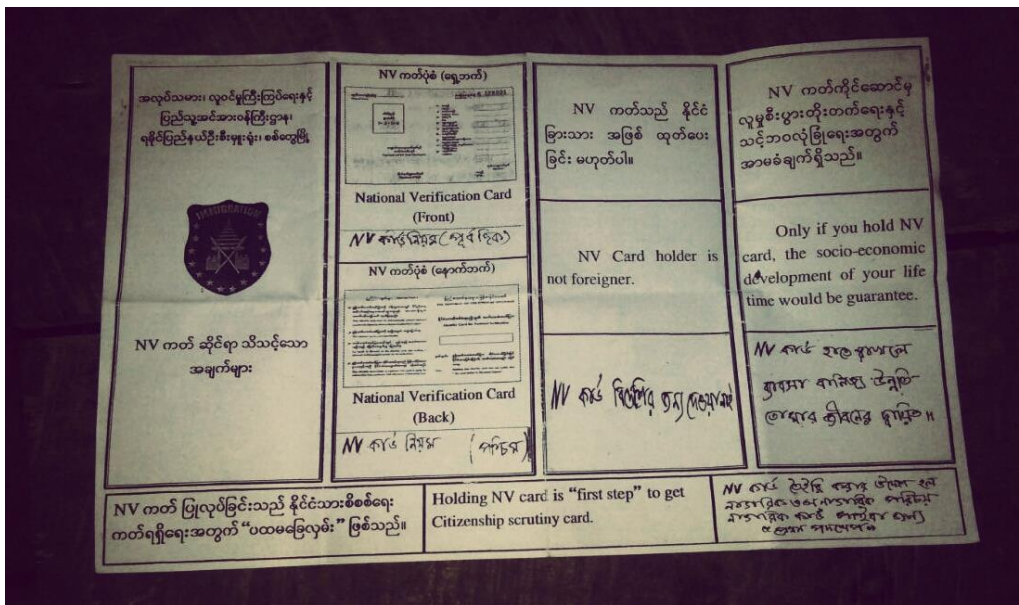 အလုပ်သမား၊ လူဝင်မှုကြီးကြပ်ရေးနှင့်
ပြည်သူ့အင်အားဝန်ကြီးဌာန၊
ရခိုင်ပြည်နယ်ဦးစီးမှူးရုံး၊ စစ်တွေမြို့
IMMIGRATION
NV ကတ် ဆိုင်ရာ သိသင့်သော
အချက်များ
NV ကတ်ပုံစံ (ရှေ့ဘက်)
National Verification Card
(Front)
NV কার্ড নিয়ম (পূর্ব দিক)
NV ကတ်ပုံစံ (နောက်ဘက်)
National Verification Card
(Back)
NV কার্ড নিয়ম (পশ্চিম)
NV ကတ်သည် နိုင်ငံ
ခြားသား အဖြစ် ထုတ်ပေး
ခြင်း မဟုတ်ပါ။
NV Card holder is
not foreigner.
NV কার্ড বিদেশির জন্য দেওয়া নই
NV ကတ်ကိုင်ဆောင်မှ
လူမှုစီးပွားတိုးတက်ရေးနှင့်
သင့်ဘဝလုံခြုံရေးအတွက်
အာမခံချက်ရှိသည်။
Only if you hold NV
card, the socio-economic
development of your life
time would be guarantee.
NV কার্ড হাতে থাকলে
ব্যবসা বানিজ্য উন্নতি
তোমার জীবনের
NV ကတ် ပြုလုပ်ခြင်းသည် နိုင်ငံသားစိစစ်ရေး
ကတ်ရရှိရေးအတွက် “ပထမခြေလှမ်း” ဖြစ်သည်။
Holding NV card is “first step” to get
Citizenship scrutiny card.
NV কার্ড